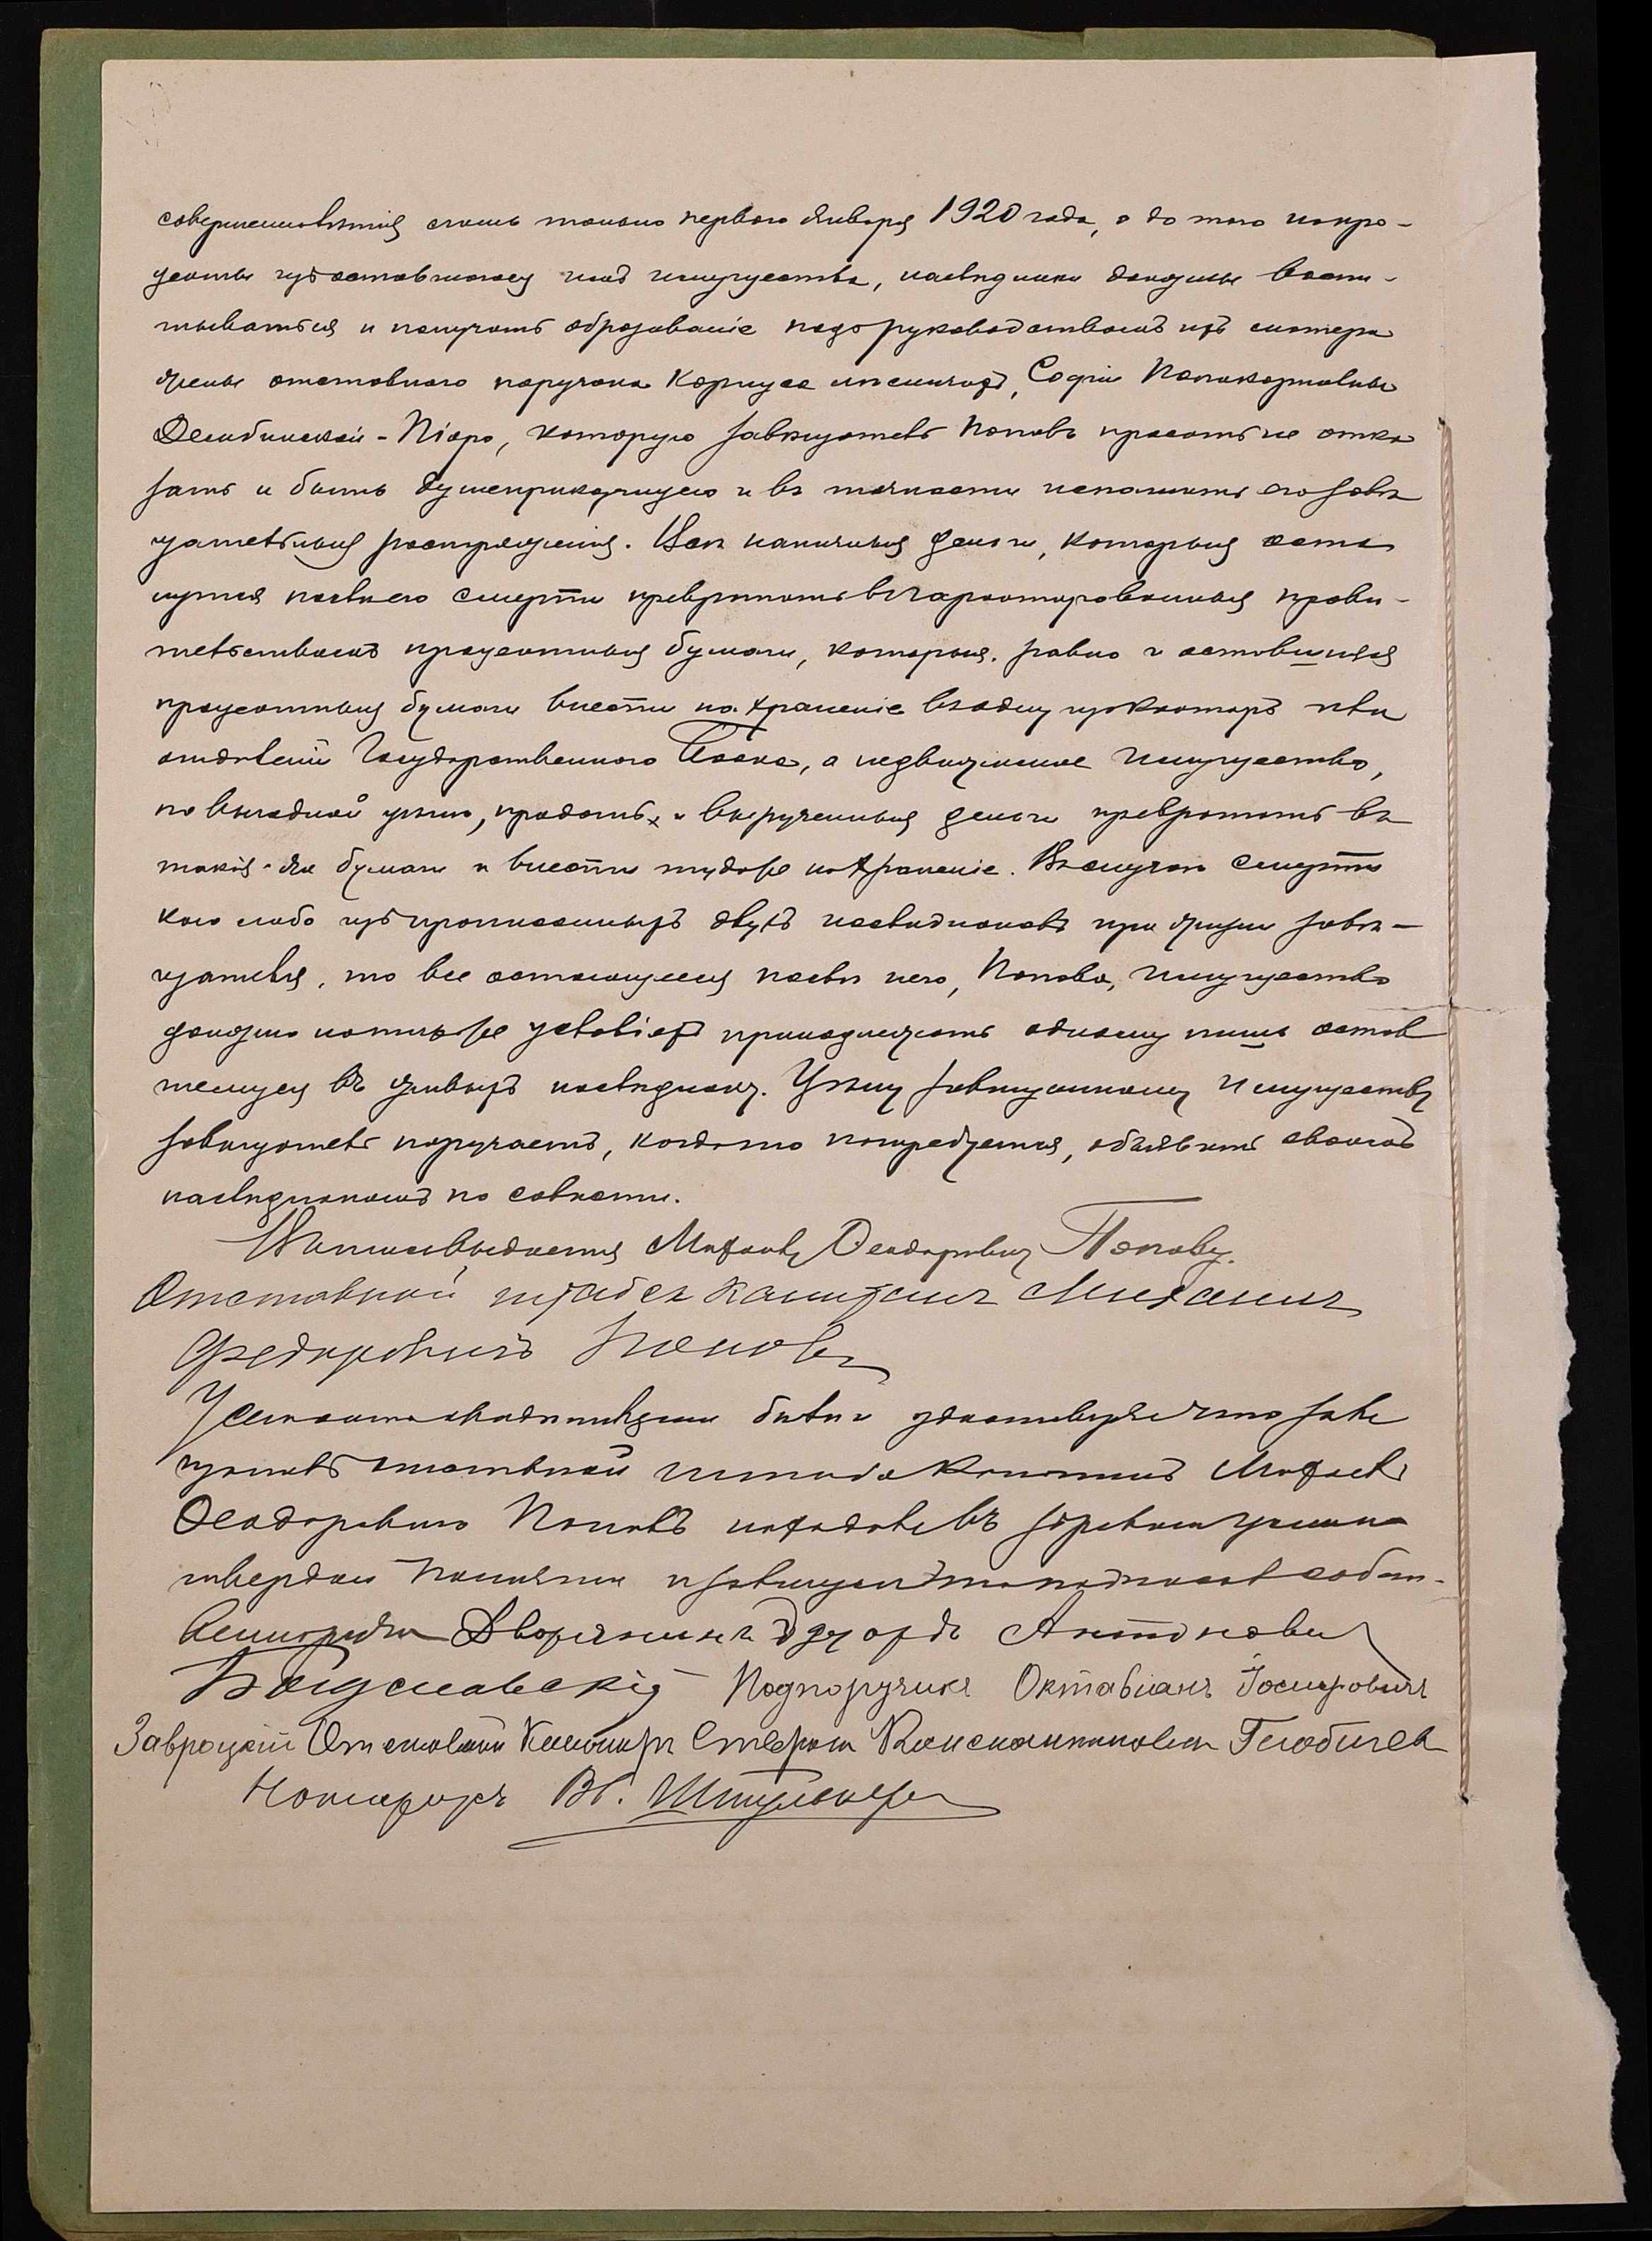 совершеннолѣтія лишь только перваго Января 1920 года, а до того на про-
центы изъ оставленнаго имъ имущества, наслѣдники должны воспи-
тываться и получать образованіе подъ руководствомъ ихъ матери
жены отставного поручика Корпуса лѣсничихъ, Софіи Поликарповны
-Піоро, которую завѣщатель Поповъ проситъ не отка
зать и быть душеприкащицею и въ точности исполнить его завѣ
щательныя распоряженія. Всѣ наличныя деньги, которыя оста
нутся послѣ его смерти превратить въ гарантированныя прави-
тельствомъ процентныя бумаги, которыя, равно и оставшіяся
процентныя бумаги внести на храненіе въ одну изъ конторъ или
отдѣленій Государственного Банка, а недвижимое имущество,
по выгодной цѣнѣ, продать, и вырученныя деньги превратить въ
такія-же бумаги и внести туда же на храненіе. Въ случаѣ смерти
кого либо изъ прописанныхъ двухъ наслѣдниковъ при жизни завѣ-
щателя, то все остающееся послѣ него, Попова, имущество
должно на тѣхъ же условіяхъ принадлежать одному лишь остав
шемуся въ живыхъ наслѣднику. Цѣну завѣщанному имуществу
завѣщатель поручаетъ, когда то потребуется, объявить своимъ
наслѣдникамъ по совѣсти.
Выпись выдается Михаилу Феодоровичу Попову.
Отставной штабсъ капитанъ Михаилъ
Федоровичъ Поповъ
У сего акта свидѣтелями были и удостовѣряемъ что завѣ
щатель отставной штабсъ капитанъ Михаилъ
Феодоровичъ Поповъ находился въ здравомъ умѣ и
твердой памяти и завѣщаніе то подписалъ собст-
венноручно Дворянинъ Эдуардъ Антоновичъ
Подпоручикъ Октавіанъ Іосифовичъ
Завроцкій Отставной Стефанъ Константиновичъ
Нотаріусъ Вл.